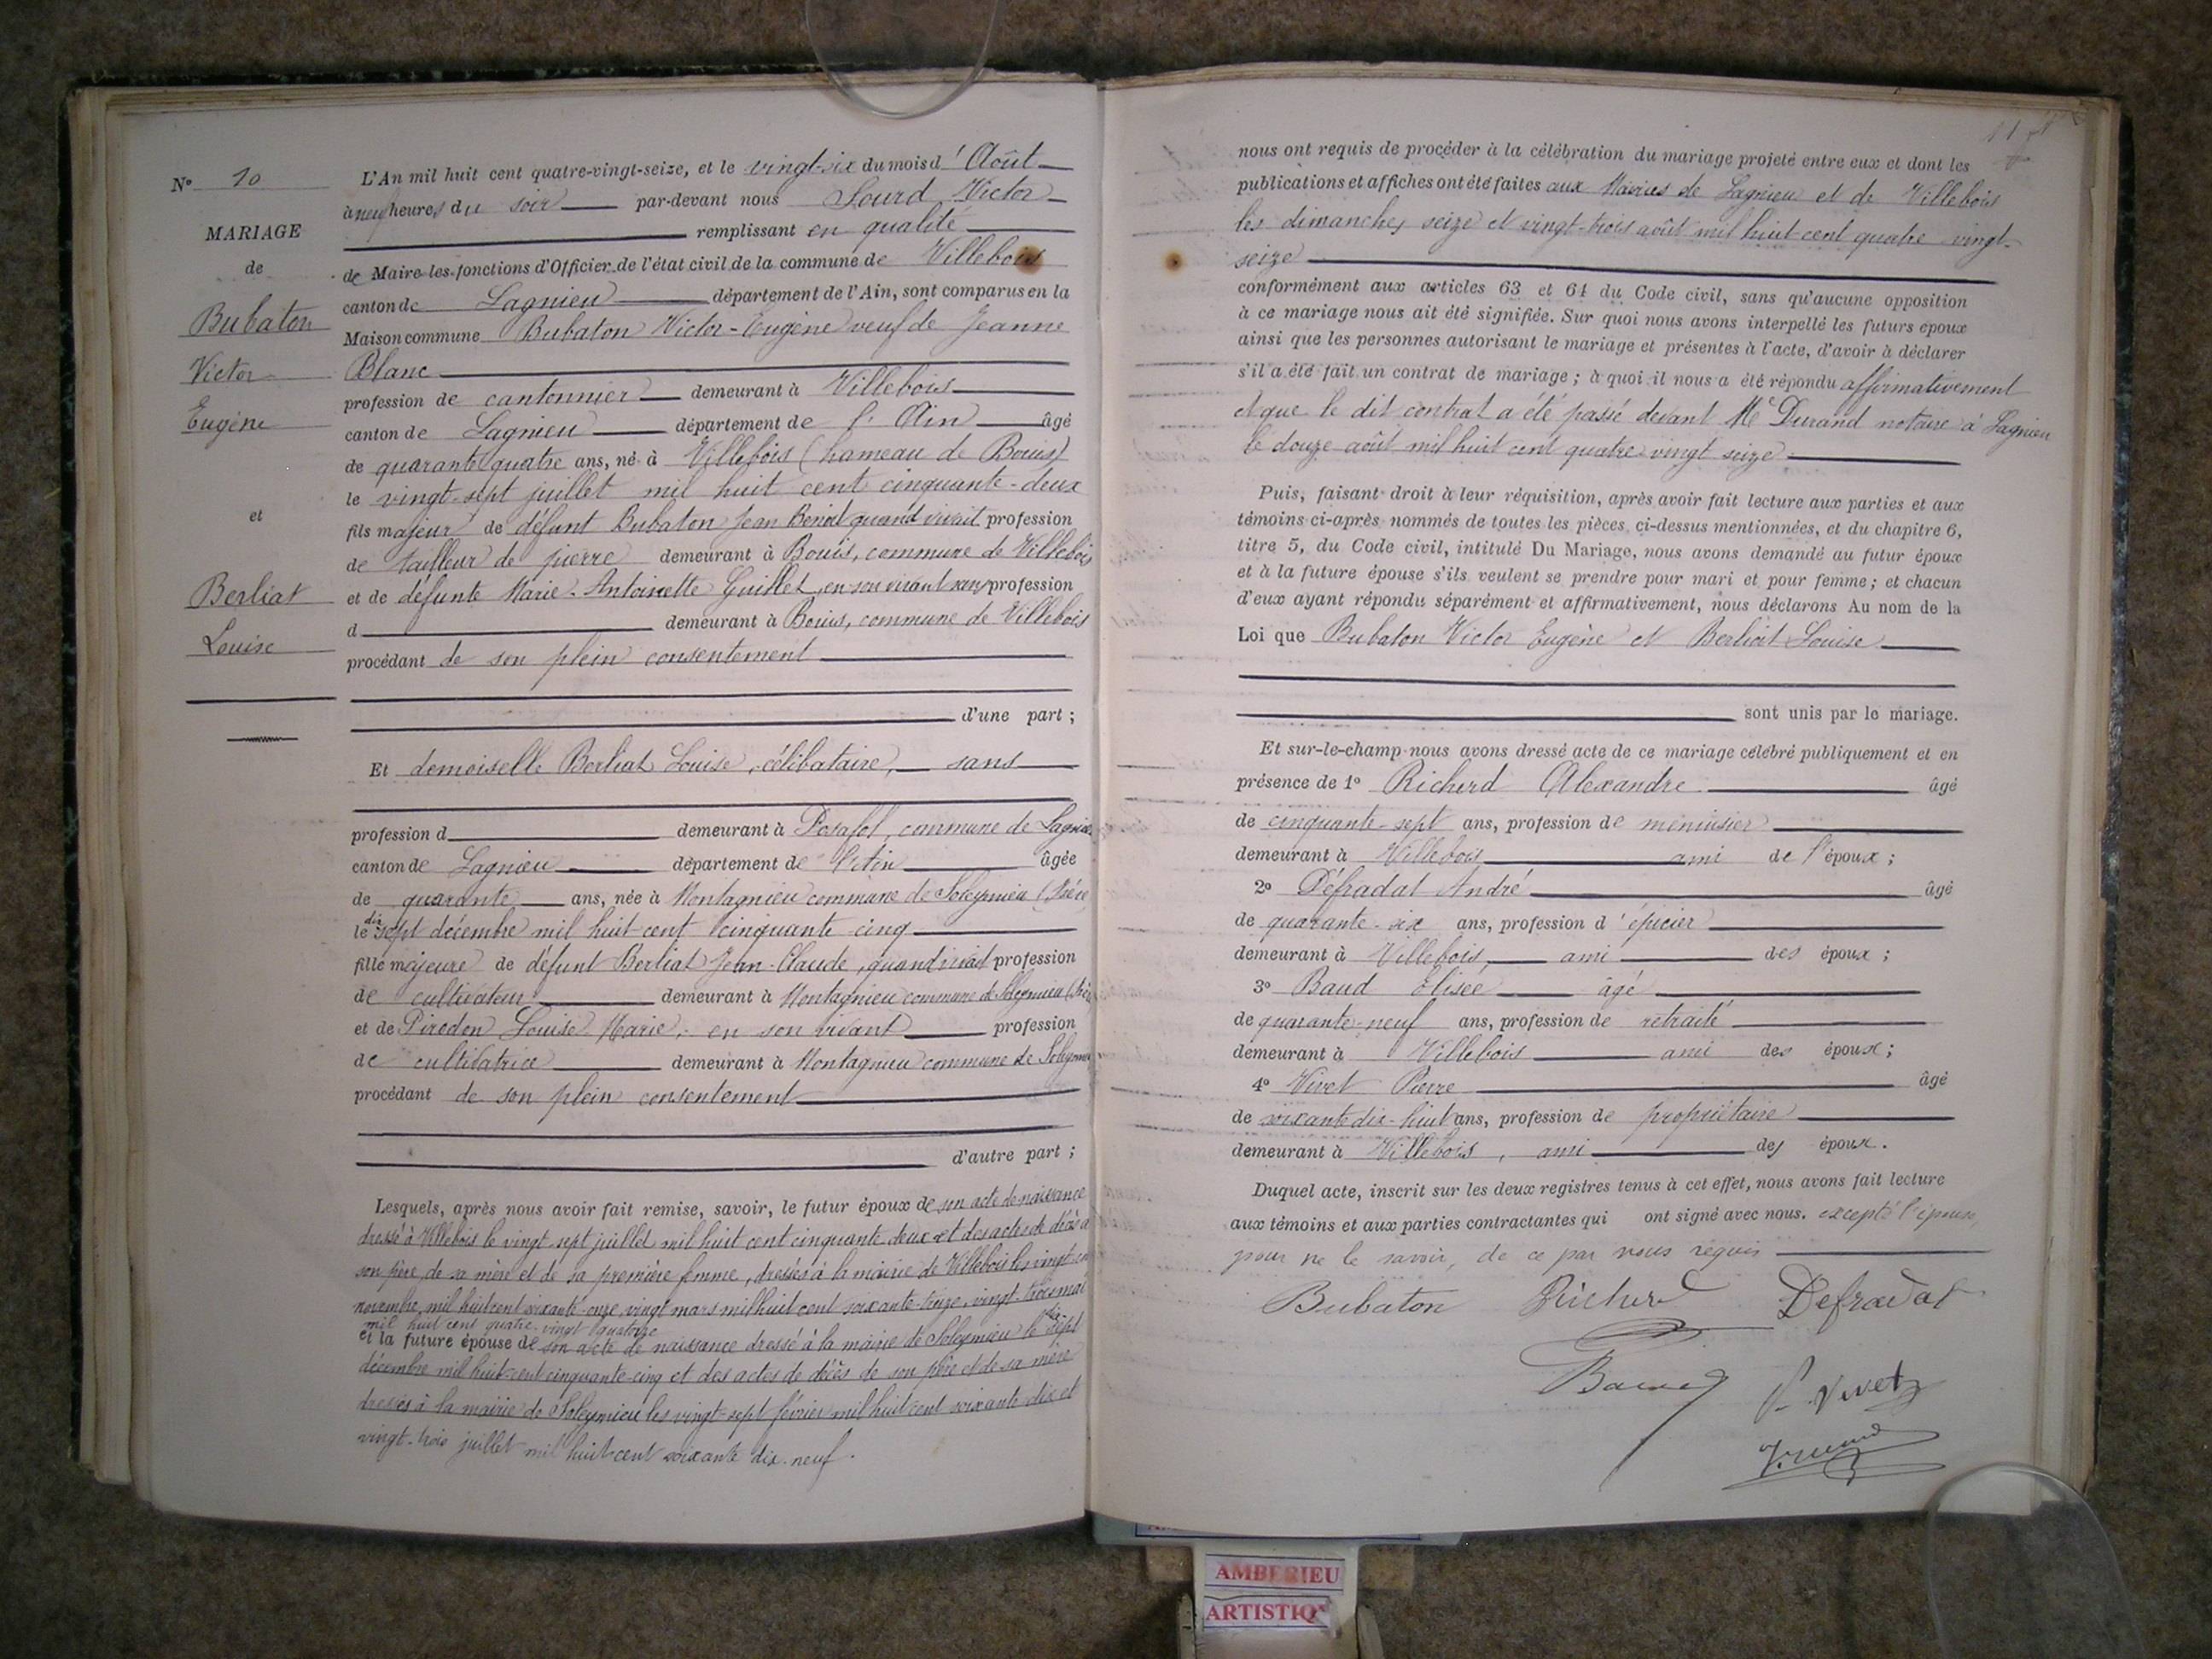 N° 10
MARIAGE
de
Bubaton
Victor
Eugène
et
Berliat
Louise
L'An mil huit cent quatre-vingt-seize, et le vingt-six du mois d'Août
à neuf heures du soir par-devant nous Sourd Victor
remplissant en qualité
de Maire les fonctions d'Officier de l'état civil de la commune de Villebois
canton de Lagnieu département de l'Ain, sont comparus en la
Maison commune Bubaton Victor-Eugène veuf de Jeanne
Blanc
profession de cantonnier demeurant à Villebois
canton de Lagnieu département de l'Ain âgé
de quarante quatre ans, né à Villebois (hameau de Bouis)
le vingt-sept juillet mil huit cent cinquante-deux
fils majeur de défunt Bubaton Jean Benoit quand vivait profession
de tailleur de pierre demeurant à Bouis, commune de Villebois
et de défunte Marie-Antoinette Guillet, en son vivant sans profession
d demeurant à Bouis, commune de Villebois
procédant de son plein consentement
d'une part ;
Et demoiselle Berliat Louise, célibataire, sans
profession d demeurant à Posafol, commune de Lagnieu
canton de Lagnieu département de l'Ain âgée
de quarante ans, née à Montagnieu commune de Soleymieu (Isère)
le dix sept décembre mil huit-cent cinquante cinq
fille majeure de défunt Berliat Jean-Claude, quand vivait profession
de cultivateur demeurant à Montagnieu commune de Soleymieu (Isère)
et de Piredon Louise Marie, en son vivant profession
de cultivatrice demeurant à Montagnieu commune de Soleymieu
procédant de son plein consentement
d'autre part ;
Lesquels, après nous avoir fait remise, savoir, le futur époux de son acte de naissance
dressé à Villebois le vingt-sept juillet mil huit cent cinquante deux et des actes de décès de
son père, de sa mère et de sa première femme, dressés à la mairie de Villebois les vingt-un
novembre mil huit cent soixante-onze, vingt mars mil huit cent soixante-treize, vingt-trois mai
mil huit cent quatre-vingt quatorze
et la future épouse de son acte de naissance dressé à la mairie de Soleymieu le dix-sept
décembre mil huit-cent cinquante-cinq et des actes de décès de son père et de sa mère
dressés à la mairie de Soleymieu les vingt-sept février mil huit cent soixante dix et
vingt-trois juillet mil huit-cent soixante dix-neuf.
11
nous ont requis de procéder à la célébration du mariage projeté entre eux et dont les
publications et affiches ont été faites aux Mairies de Lagnieu et de Villebois
les dimanches seize et vingt-trois août mil huit cent quatre-vingt-
seize
conformément aux articles 63 et 64 du Code civil, sans qu'aucune opposition
à ce mariage nous ait été signifiée. Sur quoi nous avons interpellé les futurs époux
ainsi que les personnes autorisant le mariage et présentes à l'acte, d'avoir à déclarer
s'il a été fait un contrat de mariage ; à quoi il nous a été répondu affirmativement
et que le dit contrat a été passé devant Me Durand notaire à Lagnieu
le douze août mil huit cent quatre vingt seize
Puis, faisant droit à leur réquisition, après avoir fait lecture aux parties et aux
témoins ci-après nommés de toutes les pièces ci-dessus mentionnées, et du chapitre 6,
titre 5, du Code civil, intitulé Du Mariage, nous avons demandé au futur époux
et à la future épouse s'ils veulent se prendre pour mari et pour femme ; et chacun
d'eux ayant répondu séparément et affirmativement, nous déclarons Au nom de la
Loi que Bubaton Victor Eugène et Berliat Louise
sont unis par le mariage.
Et sur-le-champ nous avons dressé acte de ce mariage célébré publiquement et en
présence de 1° Richerd Alexandre âgé
de cinquante-sept ans, profession de menuisier
demeurant à Villebois ami de l'époux ;
2° Défradat André âgé
de quarante-six ans, profession d'épicier
demeurant à Villebois, ami des époux ;
3° Baud Elisée âgé
de quarante-neuf ans, profession de retraité
demeurant à Villebois ami des époux ;
4° Vivet Pierre âgé
de soixante dix-huit ans, profession de propriétaire
demeurant à Villebois, ami des époux.
Duquel acte, inscrit sur les deux registres tenus à cet effet, nous avons fait lecture
aux témoins et aux parties contractantes qui ont signé avec nous. excepté l'épouse,
pour ne le savoir, de ce par nous requis
Bubaton Richerd Defradat
Baud
P. Vivet
AMBERIEU
ARTISTIQ